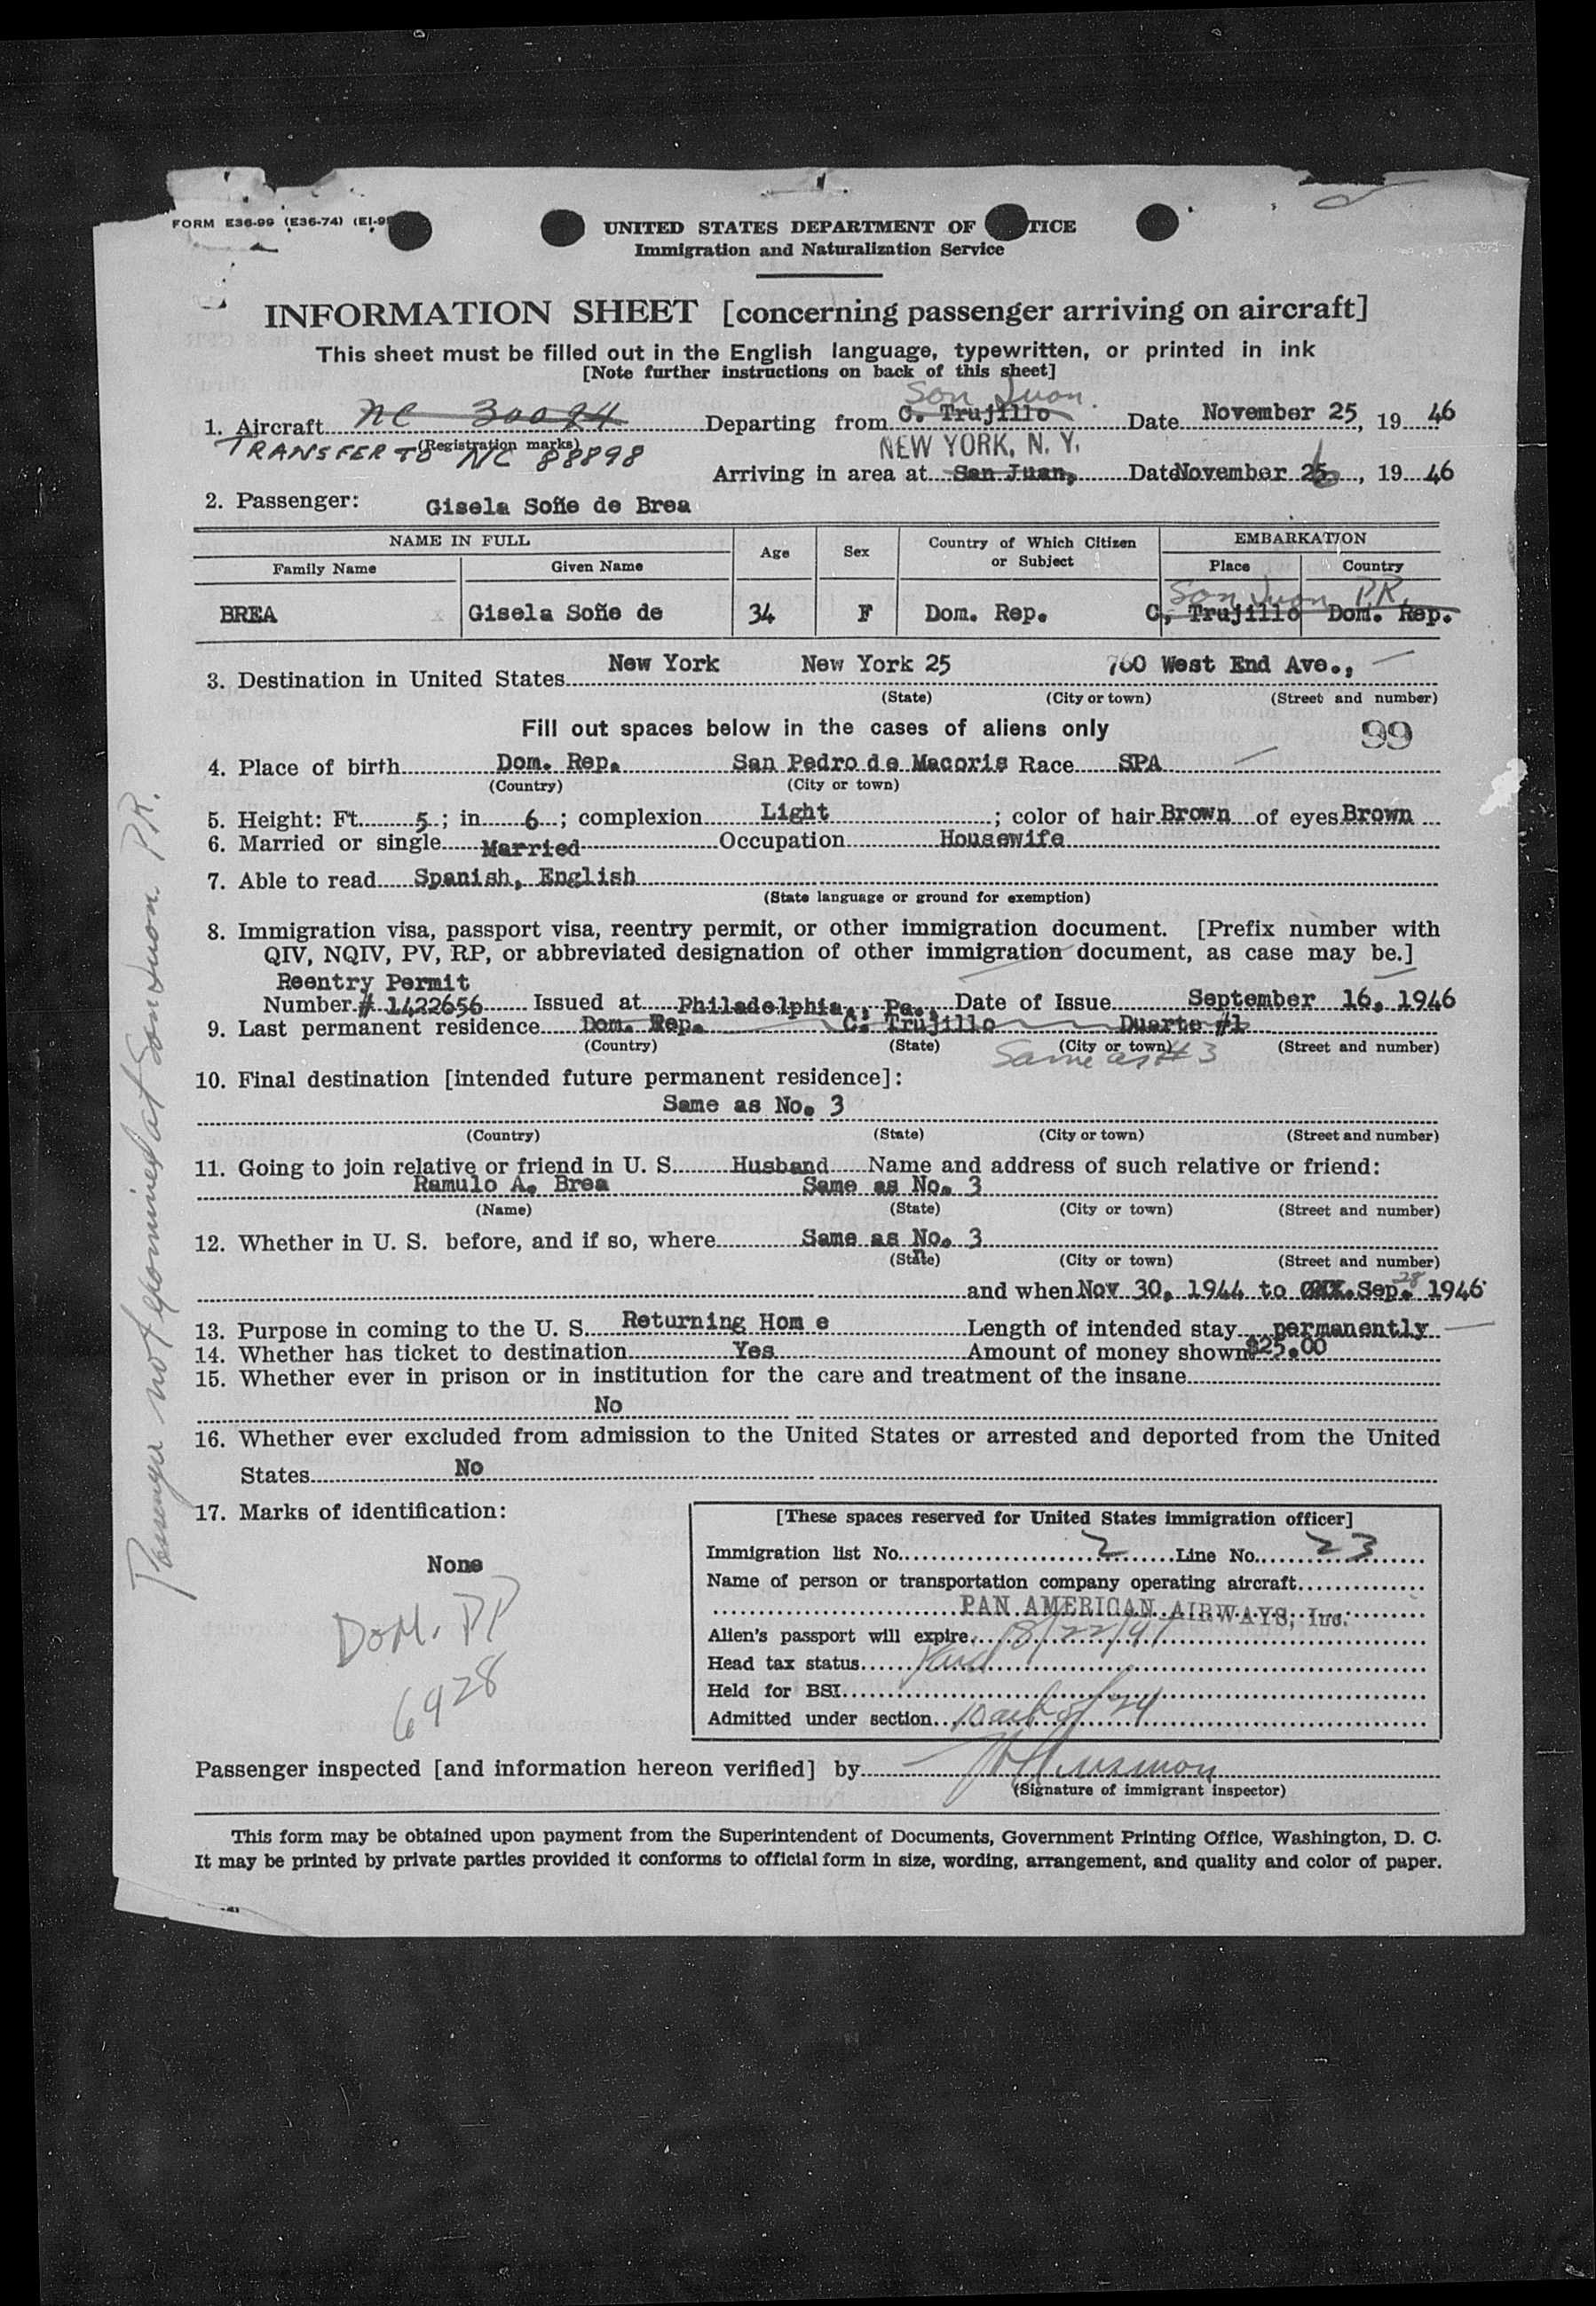 FORM E36-99 (E36-74) (EI-9
UNITED STATES DEPARTMENT OF TICE
Immigration and Naturalization Service
INFORMATION SHEET [concerning passenger arriving on aircraft]
This sheet must be filled out in the English language, typewritten, or printed in ink
[Note further instructions on back of this sheet]
San Juan.
1. Aircraft NC 30084 Departing from C. Trujillo Date November 25, 1946
(Registration marks)
TRANSFER TO NC 88898 NEW YORK, N. Y.
Arriving in area at San Juan, Date November 26, 1946
2. Passenger: Gisela Soñe de Brea
NAME IN FULL Age Sex Country of Which Citizen or Subject EMBARKATION
Family Name Given Name Place Country
San Juan P.R.
BREA Gisela Soñe de 34 F Dom. Rep. C. Trujillo Dom. Rep.
3. Destination in United States New York New York 25 760 West End Ave.,
(State) (City or town) (Street and number)
Fill out spaces below in the cases of aliens only 99
4. Place of birth Dom. Rep. San Pedro de Macoris Race SPA
(Country) (City or town)
5. Height: Ft. 5; in 6; complexion Light; color of hair Brown of eyes Brown
6. Married or single Married Occupation Housewife
7. Able to read Spanish, English
(State language or ground for exemption)
8. Immigration visa, passport visa, reentry permit, or other immigration document. [Prefix number with
QIV, NQIV, PV, RP, or abbreviated designation of other immigration document, as case may be.]
Reentry Permit
Number # 1422656 Issued at Philadelphia, Pa., Date of Issue September 16, 1946
9. Last permanent residence Dom. Rep. C. Trujillo Duarte #1
(Country) (State) (City or town) (Street and number)
Same as # 3
10. Final destination [intended future permanent residence]:
Same as No. 3
(Country) (State) (City or town) (Street and number)
11. Going to join relative or friend in U. S. Husband Name and address of such relative or friend:
Ramulo A. Brea Same as No. 3
(Name) (State) (City or town) (Street and number)
12. Whether in U. S. before, and if so, where Same as No. 3
(State) (City or town) (Street and number)
and when Nov 30, 1944 to Sep. 28 1946
13. Purpose in coming to the U. S. Returning Hom e Length of intended stay permanently
14. Whether has ticket to destination Yes Amount of money shown $25.00
15. Whether ever in prison or in institution for the care and treatment of the insane
No
16. Whether ever excluded from admission to the United States or arrested and deported from the United
States No
17. Marks of identification:
None
DOM. PP
6928
[These spaces reserved for United States immigration officer]
Immigration list No. 2 Line No. 23
Name of person or transportation company operating aircraft
PAN AMERICAN AIRWAYS, Inc.
Alien's passport will expire 8/22/47
Head tax status Paid
Held for BSI
Admitted under section 10 act of 24
Passenger inspected [and information hereon verified] by
(Signature of immigrant inspector)
This form may be obtained upon payment from the Superintendent of Documents, Government Printing Office, Washington, D. C.
It may be printed by private parties provided it conforms to official form in size, wording, arrangement, and quality and color of paper.
Passenger not examined at San Juan P.R.